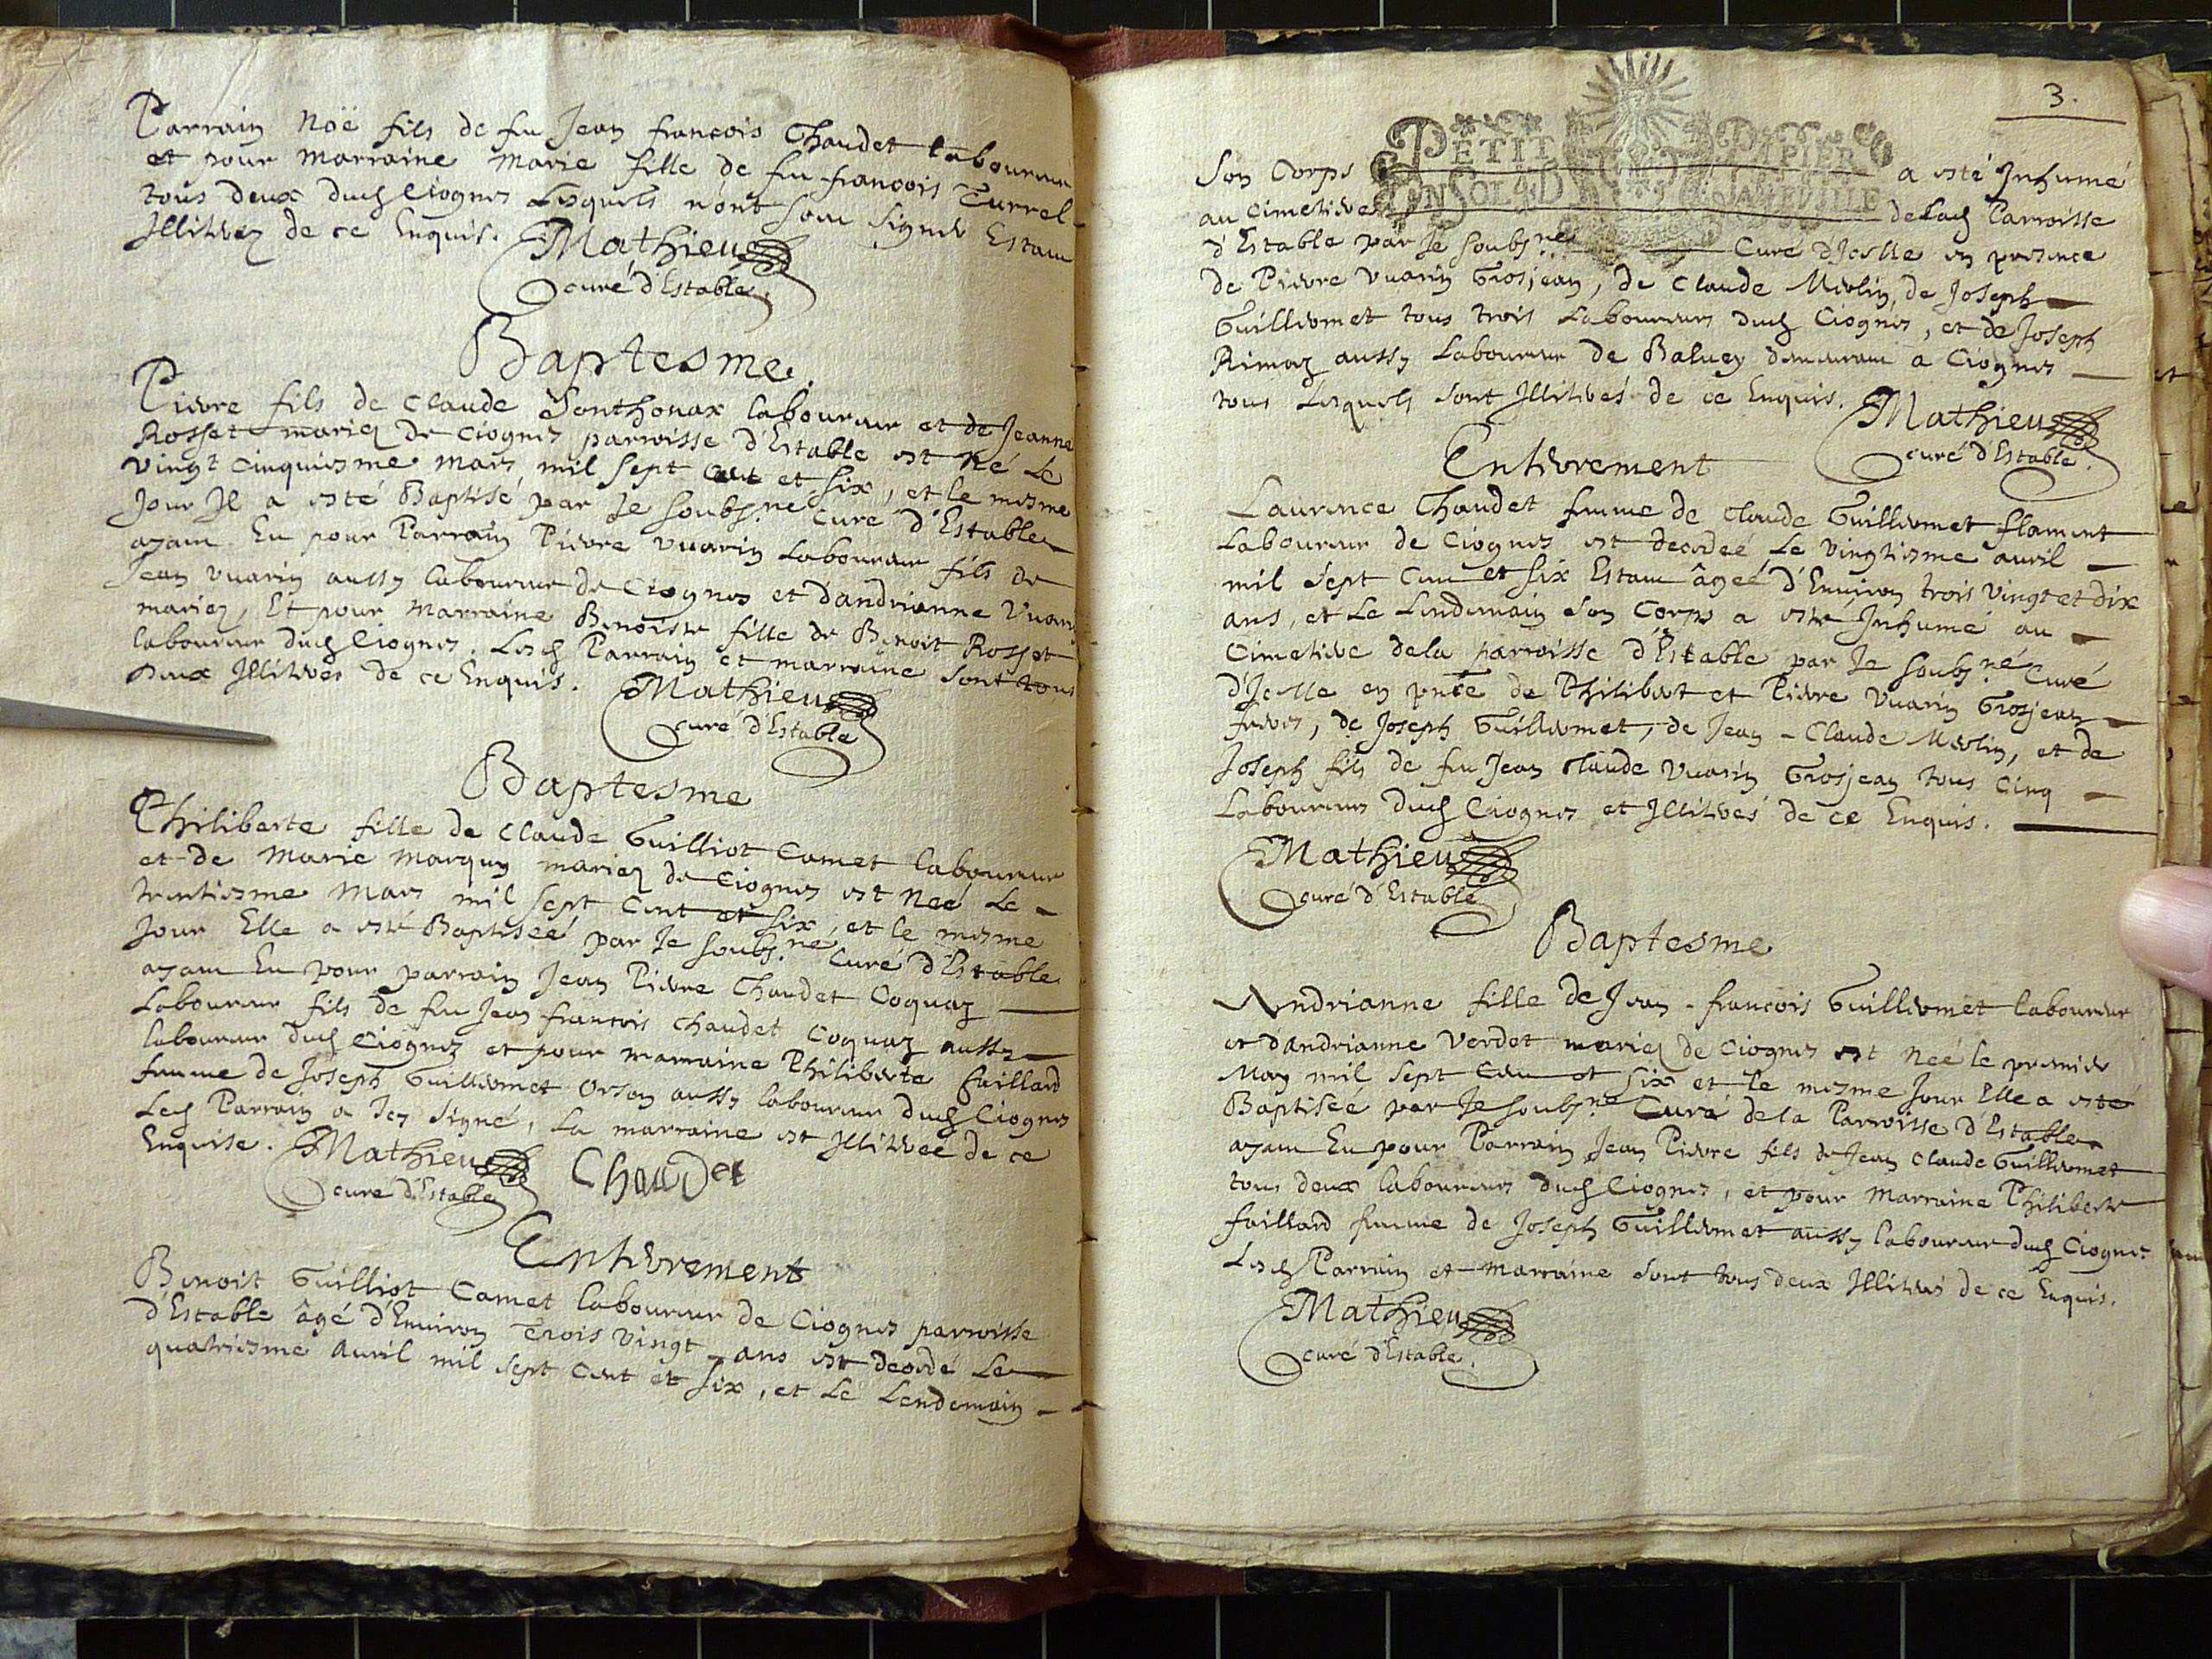 Parrain Noë fils de fu Jean francois Chaudet laboureur
et pour Marraine Marie fille de fu francois Turrel
tous deux duch Ciognes Lesquels n'ont sceu signer Estant
Jlliterez de ce Enquis. Mathieu
curé d'Estable.
Baptesme.
Pierre fils de Claude Sonthonax laboureur et de Jeanne
Rosset mariez de Ciognes parroisse d'Estable est Né Le
vingt cinquiesme mars mil sept cent et six, et le mesme
Jour Jl a esté Baptisé par Je soubs.né Curé d'Estable
ayant Eu pour Parrain Pierre Vuarin Laboureur fils de
Jean Vuarin aussy laboureur de Ciognes et d'andrianne
mariez, Et pour Marraine Benoiste fille de Benoit Rosset
laboureur duch Ciognes. Lesch Parrain et marraine sont tous
Deux Jlliterés de ce Enquis. Mathieu
curé d'Estable
Baptesme
Philiberte fille de Claude Guilliot Camet laboureur
et de Marie Marquy mariez de Ciognes est Neé Le
trentiesme Mars mil sept cent et six, et le mesme
Jour Elle a esté Baptiseé par Je soubs.né Curé d'Estable
ayant Eu pour parrain Jean Pierre Chaudet Coquaz
Laboureur fils de fu Jean francois Chaudet Coquaz aussy
laboureur duch Ciognez et pour marraine Philiberte faillard
femme de Joseph Guillermet Orson aussy laboureur duch Ciognes
Lech Parrain a Jcy signé, La marraine est Jlliterée de ce
Enquise. Mathieu Chaudet
curé d'Estable
Enterrement
Benoit Guilliot Camet laboureur de Ciognes parroisse
d'Estable âgé d'Environ Trois vingt ans est decedé Le
quatriesme Avril mil sept Cent et six, et Le Lendemain
3.
PETIT PAPIER
UN SOL 4 D LA FEUILLE
Son Corps a esté Jnhumé
au Cimetiere delach Parroisse
d'Estable par Je soubs.né Curé d'Jcelle en presence
de Pierre Vuarin Grosjean, de Claude Merlin, de Joseph
Guillermet tous trois Laboureurs duch Ciognes, et de Joseph
Rimoz aussy Laboureur de Baluey demeurant a Ciognes
tous Lesquels sont Jlliterés de ce Enquis. Mathieu
curé d'Estable.
Enterrement
Laurence Chaudet femme de Claude Guillermet flament
Laboureur de Ciognes est decedeé Le vingtiesme avril
mil sept Cent et six Estant âgeé d'Environ trois vingt et dix
ans, et Le Lendemain son Corps a esté Jnhumé au
Cimetiere dela parroisse d'Estable par Je soubs.né Curé
d'Jcelle en pnce de Philibert et Pierre Vuarin Grosjean
freres, de Joseph Guillermet, de Jean-Claude Merlin, et de
Joseph fils de fu Jean Claude Vuarin Grosjean tous Cinq
Laboureurs duch Ciognes et Jlliterés de ce Enquis.
Mathieu
curé d'Estable
Baptesme
Andrianne fille de Jean-francois Guillermet laboureur
et d'andrianne Verdet mariez de Ciognes est neé le premier
May mil sept Cent et six et le mesme Jour Elle a esté
Baptiseé par Je soubs.né Curé dela Parroisse d'Estable
ayant Eu pour Parrain Jean Pierre fils de Jean Claude Guillermet
tous deux laboureurs duch Ciognes, et pour Marraine Philiberte
faillard femme de Joseph Guillermet aussy laboureur duch Ciognes
Lesch Parrain et Marraine sont tous deux Jlliterés de ce Enquis.
Mathieu
curé d'Estable.